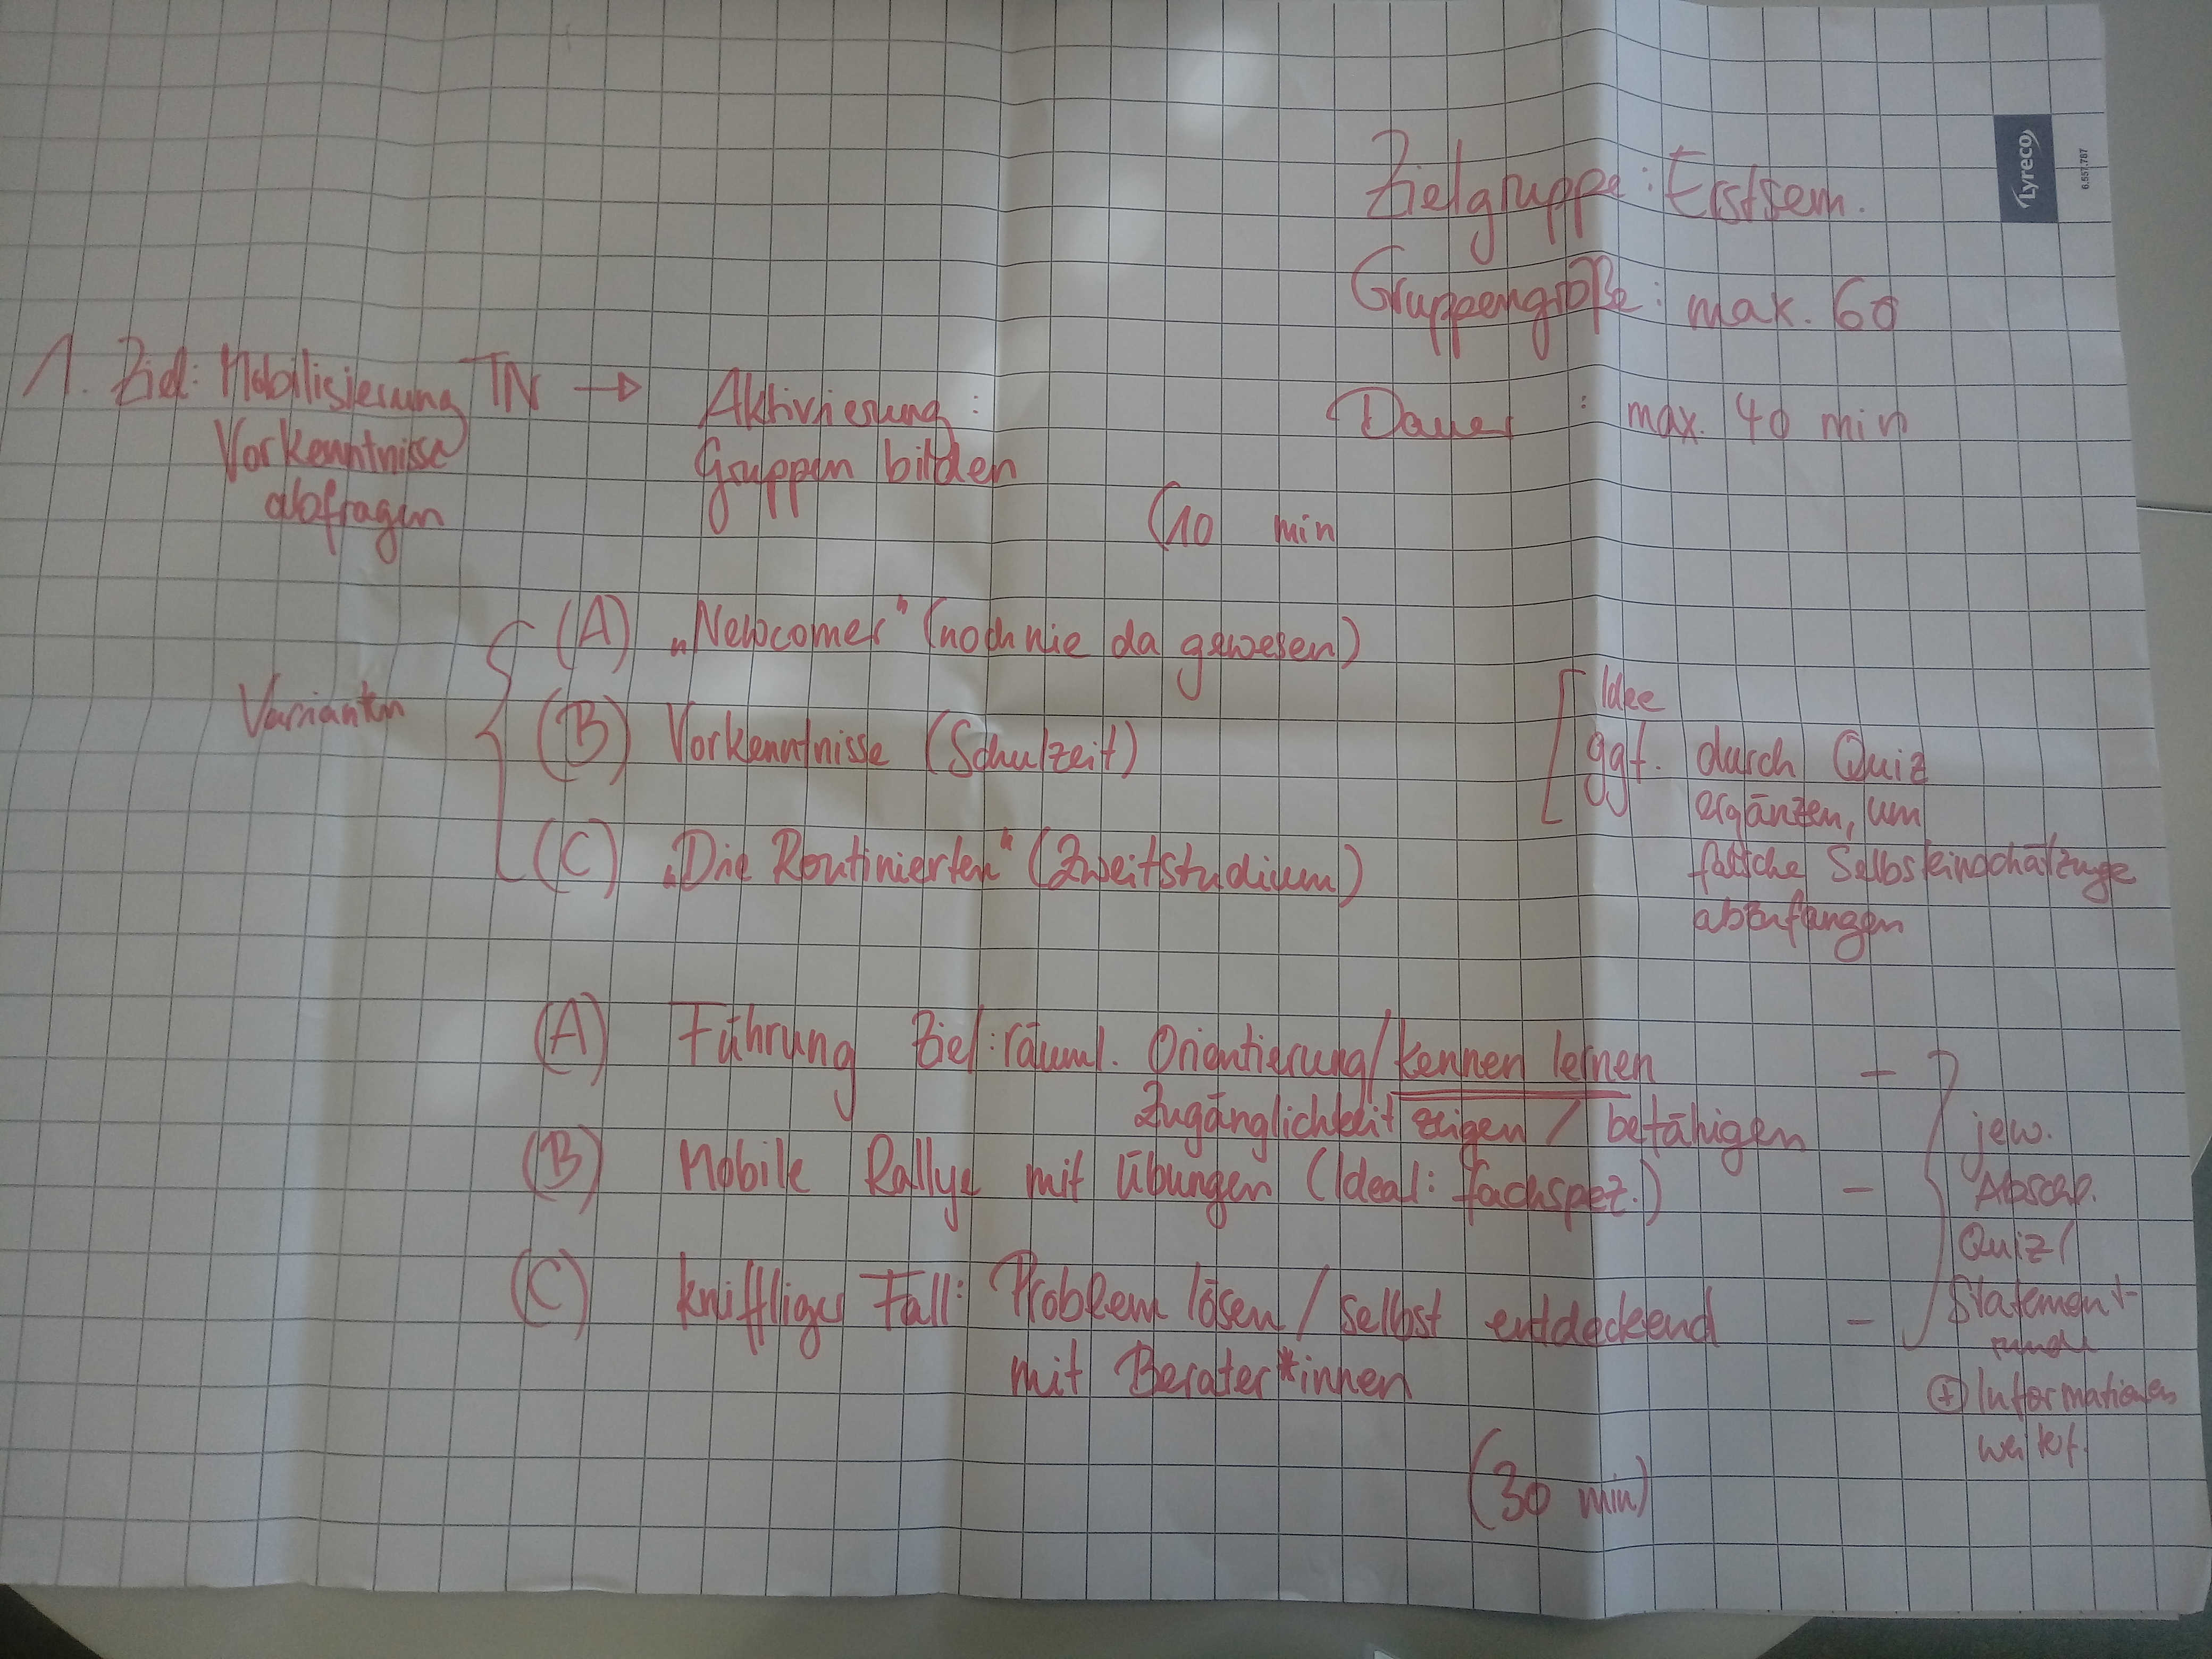 Lyreco
6.557.787
Zielgruppe: Erstsem.
Gruppengröße: max. 60
Dauer : max. 40 min
1. Ziel: Mobilisierung TN → Aktivierung:
Vorkenntnisse
abfragen
Gruppen bilden
(10 min
Varianten
(A) „Newcomer" (noch nie da gewesen)
(B) Vorkenntnisse (Schulzeit)
(C) „Die Routinierten" (Zweitstudium)
Idee
ggf. durch Quiz
ergänzen, um
falsche Selbsteinschätzunge
abzufangen
(A) Führung Ziel: räuml. Orientierung/kennen lernen
Zugänglichkeit zeigen / befähigen
(B) Mobile Rallye mit Übungen (Ideal: fachspez.)
(C) kniffliger Fall: Problem lösen / selbst entdeckend
mit Berater*innen
(30 min)
jew.
Quiz/
Statement-
runde
+ Informationen